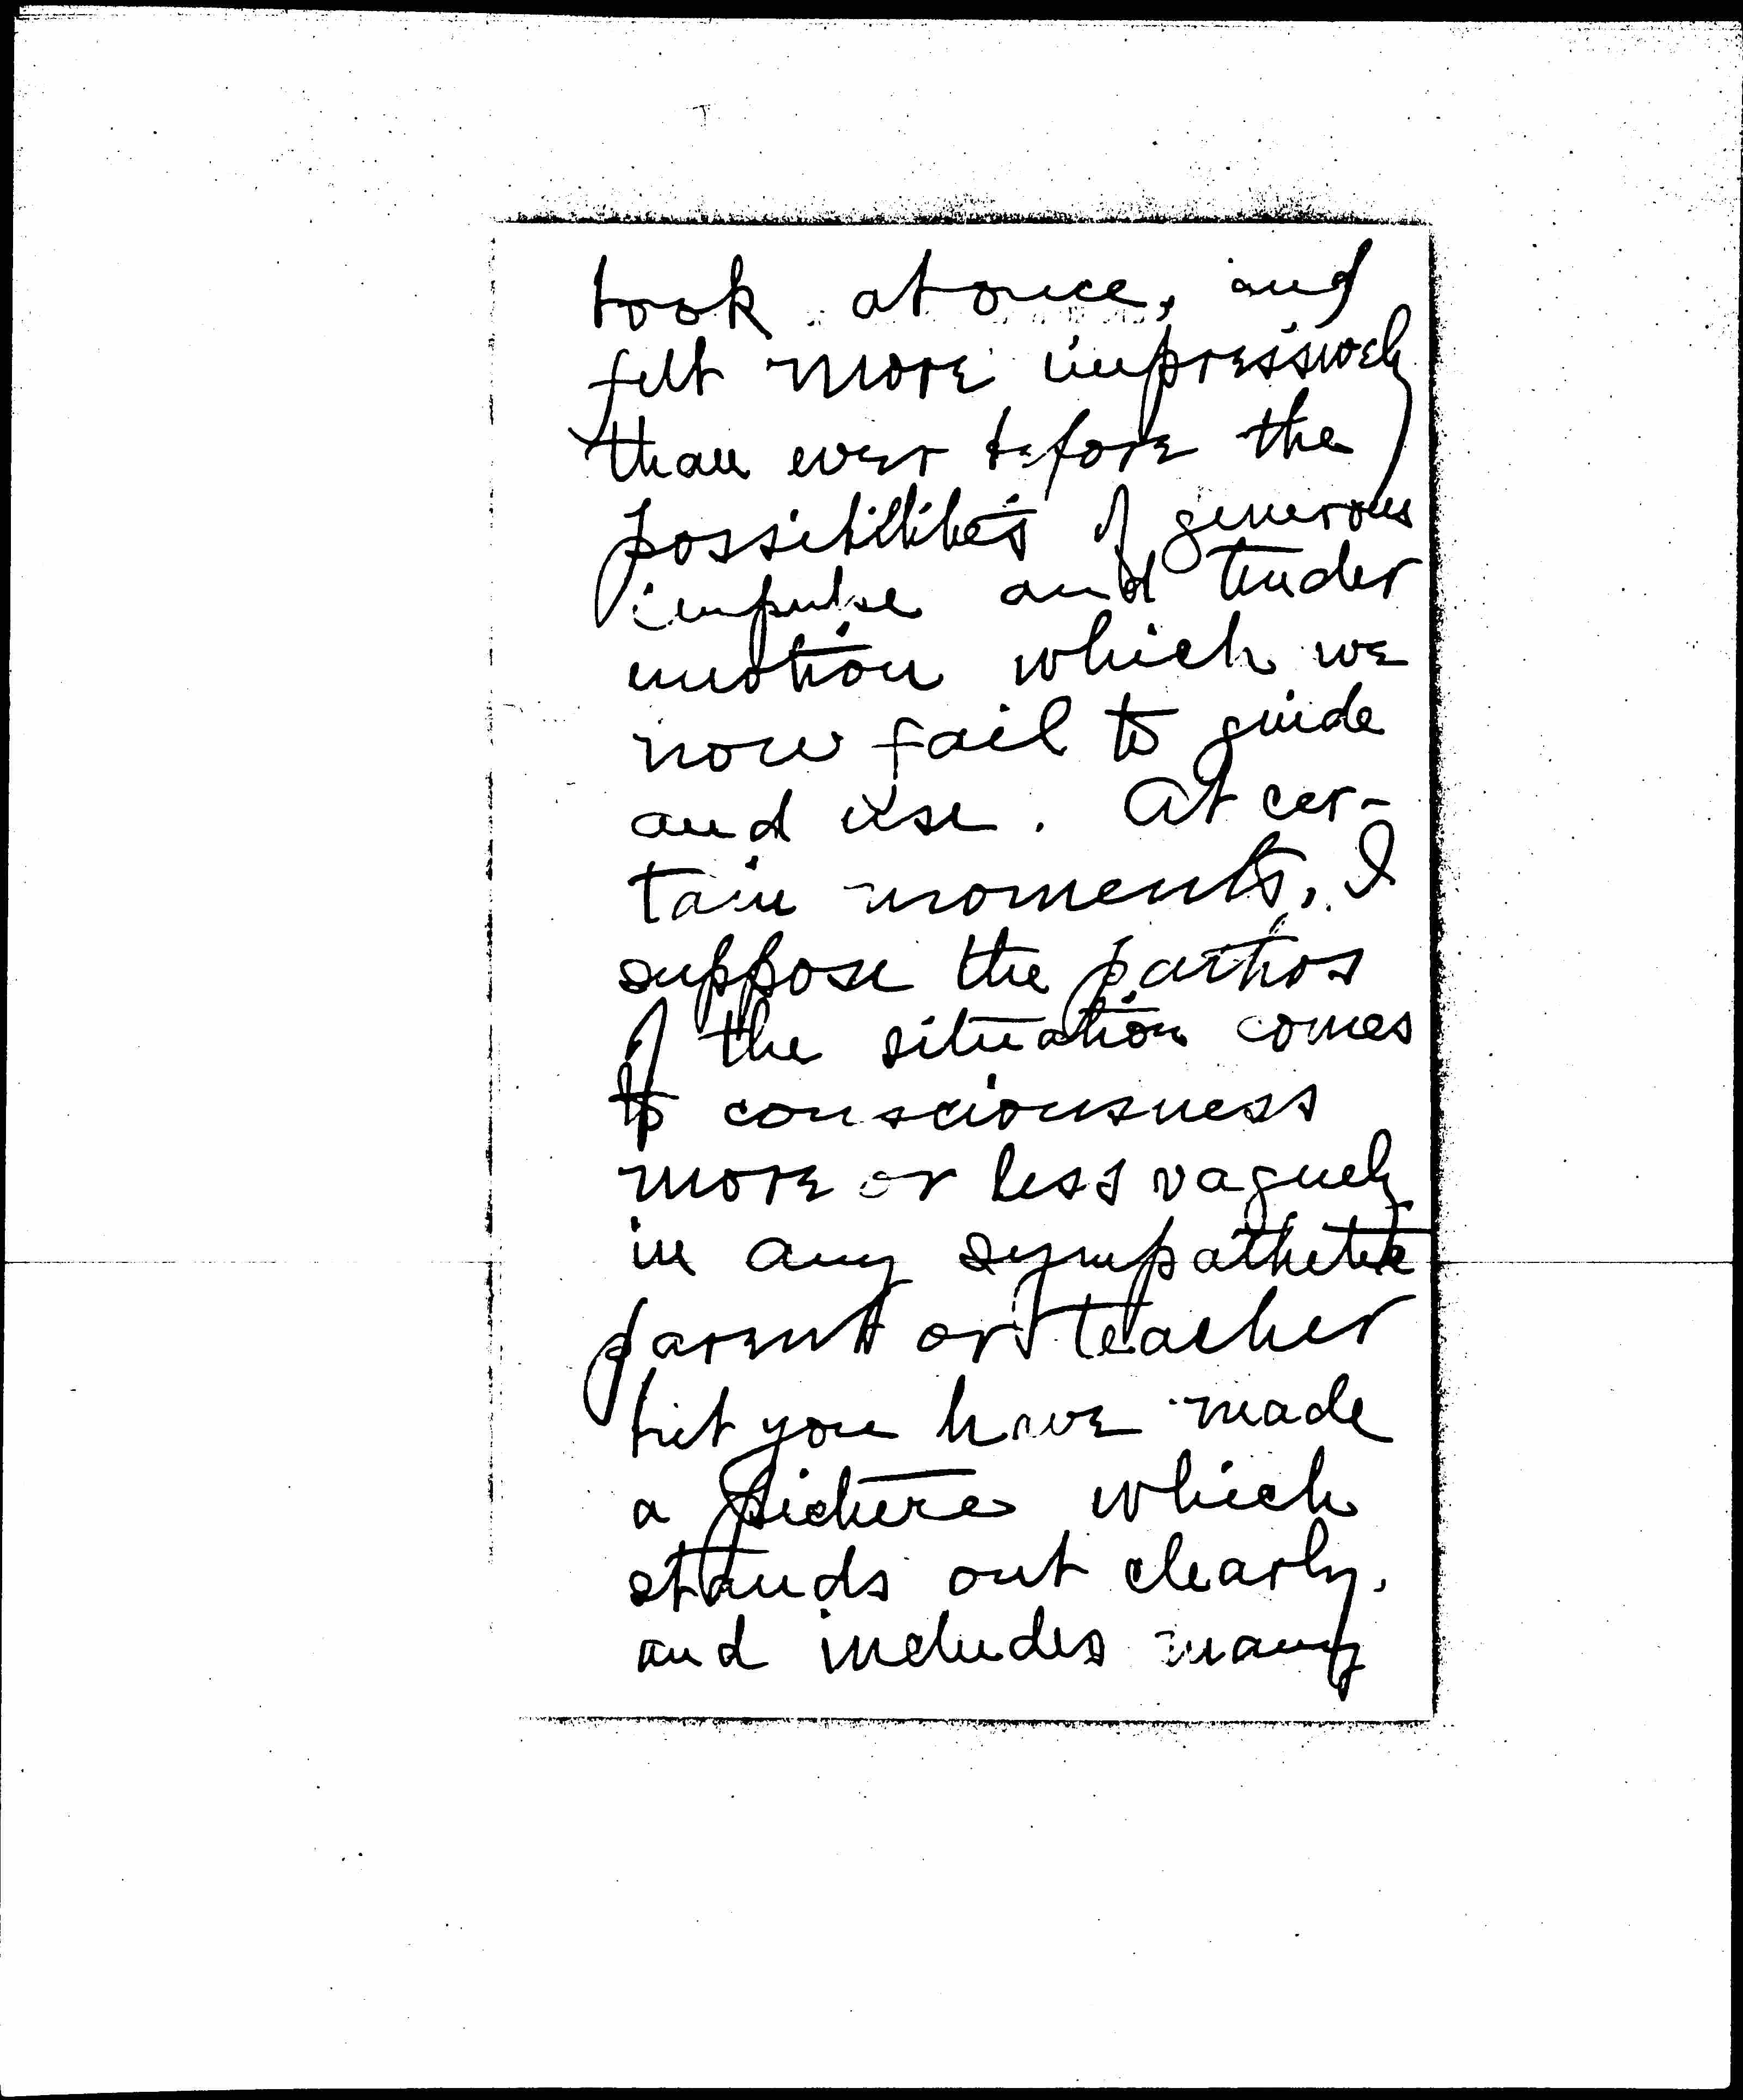 took at once, and
felt more impressively
than ever before the
possibilities of generous
impulse and tender
emotion which we
now fail to guide
and use. At cer-
tain moments, I
suppose the pathos
of the situation comes
to consciousness
more or less vaguely
in any sympathetic
parent or teacher
but you have made
a picture which
stands out clearly,
and includes many